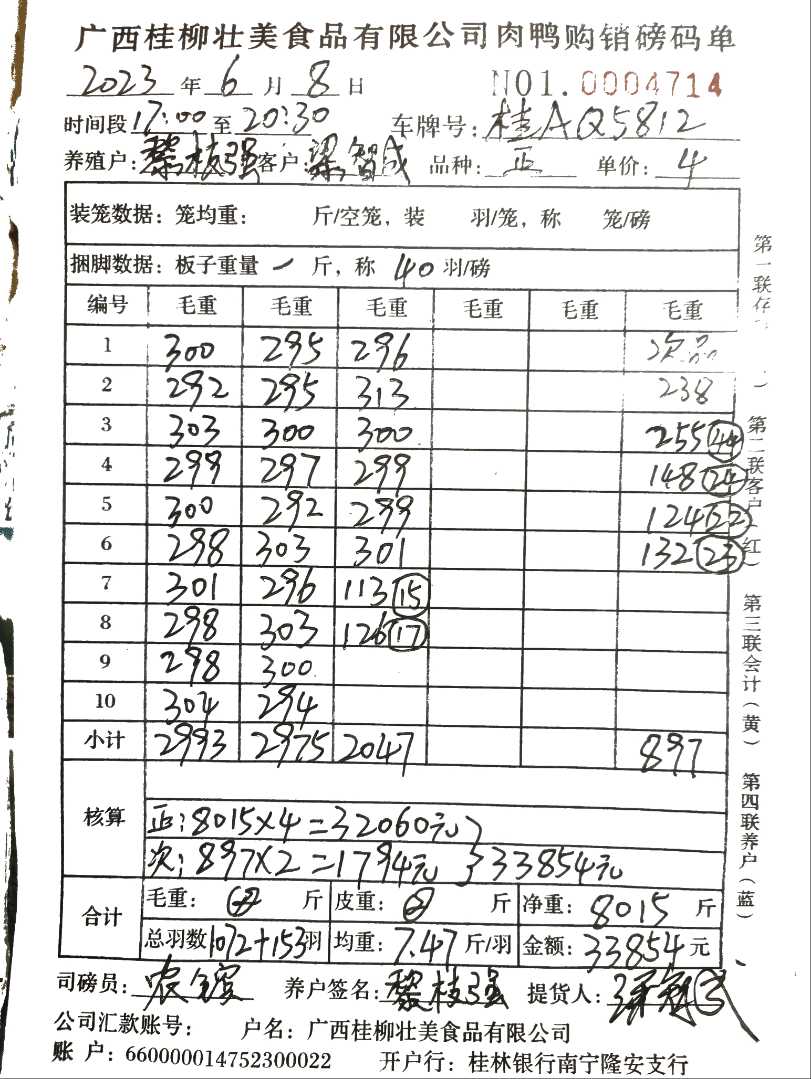 广西桂柳壮美食品有限公司肉鸭购销磅码单
2023 年 6 月 8 日 NO1. 0004714
时间段 17:00 至 20:30 车牌号: 桂AQ5812
养殖户: 黎枝强 客户: 梁智成 品种: 正 单价: 4
装笼数据: 笼均重: 斤/空笼, 装 羽/笼, 称 笼/磅
捆脚数据: 板子重量 一 斤, 称 40 羽/磅
编号 毛重 毛重 毛重 毛重 毛重 毛重
1 300 295 296 次品
2 292 295 313 238
3 303 300 300 255 44
4 299 297 299 148 24
5 300 292 299 124 22
6 298 303 301 132 23
7 301 296 113 15
8 298 303 126 17
9 298 300
10 304 294
小计 2993 2975 2047 897
核算
正: 8015×4=32060元
次: 897×2=1794元 } 33854元
合计
毛重: 斤 皮重: 斤 净重: 8015 斤
总羽数 1072+153 羽 均重: 7.47 斤/羽 金额: 33854 元
司磅员: 养户签名: 黎枝强 提货人:
公司汇款账号: 户名: 广西桂柳壮美食品有限公司
账 户: 660000014752300022 开户行: 桂林银行南宁隆安支行
第一联存
第二联客户(红)
第三联会计(黄)
第四联养户(蓝)